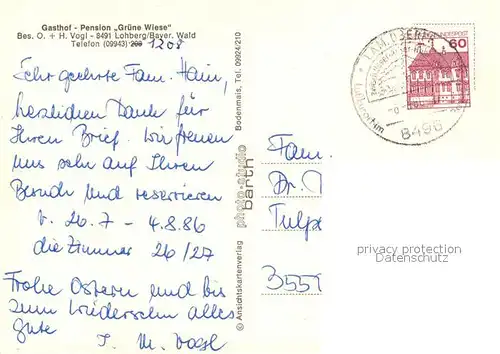 Gasthof - Pension „Grüne Wiese“
Bes. O. + H. Vogl - 8491 Lohberg/Bayer. Wald
Telefon (09943) 208 1208
Sehr geehrte Fam. Hain,
herzlichen Dank für
Ihren Brief. Wir freuen
uns sehr auf Ihren
Besuch und reservieren
v. 26.7 - 4.8.86
die Zimmer 26/27
Frohe Ostern und bis
zum Wiedersehn alles
gute
I. M. Vogl
© Ansichtskartenverlag photo-studio barth Bodenmais, Tel. 09924/210
Fam.
Dr.
Tulpe
3559
BUNDESPOST
60
LAM, OBERPF
8496
privacy protection
Privatsphärenschutz